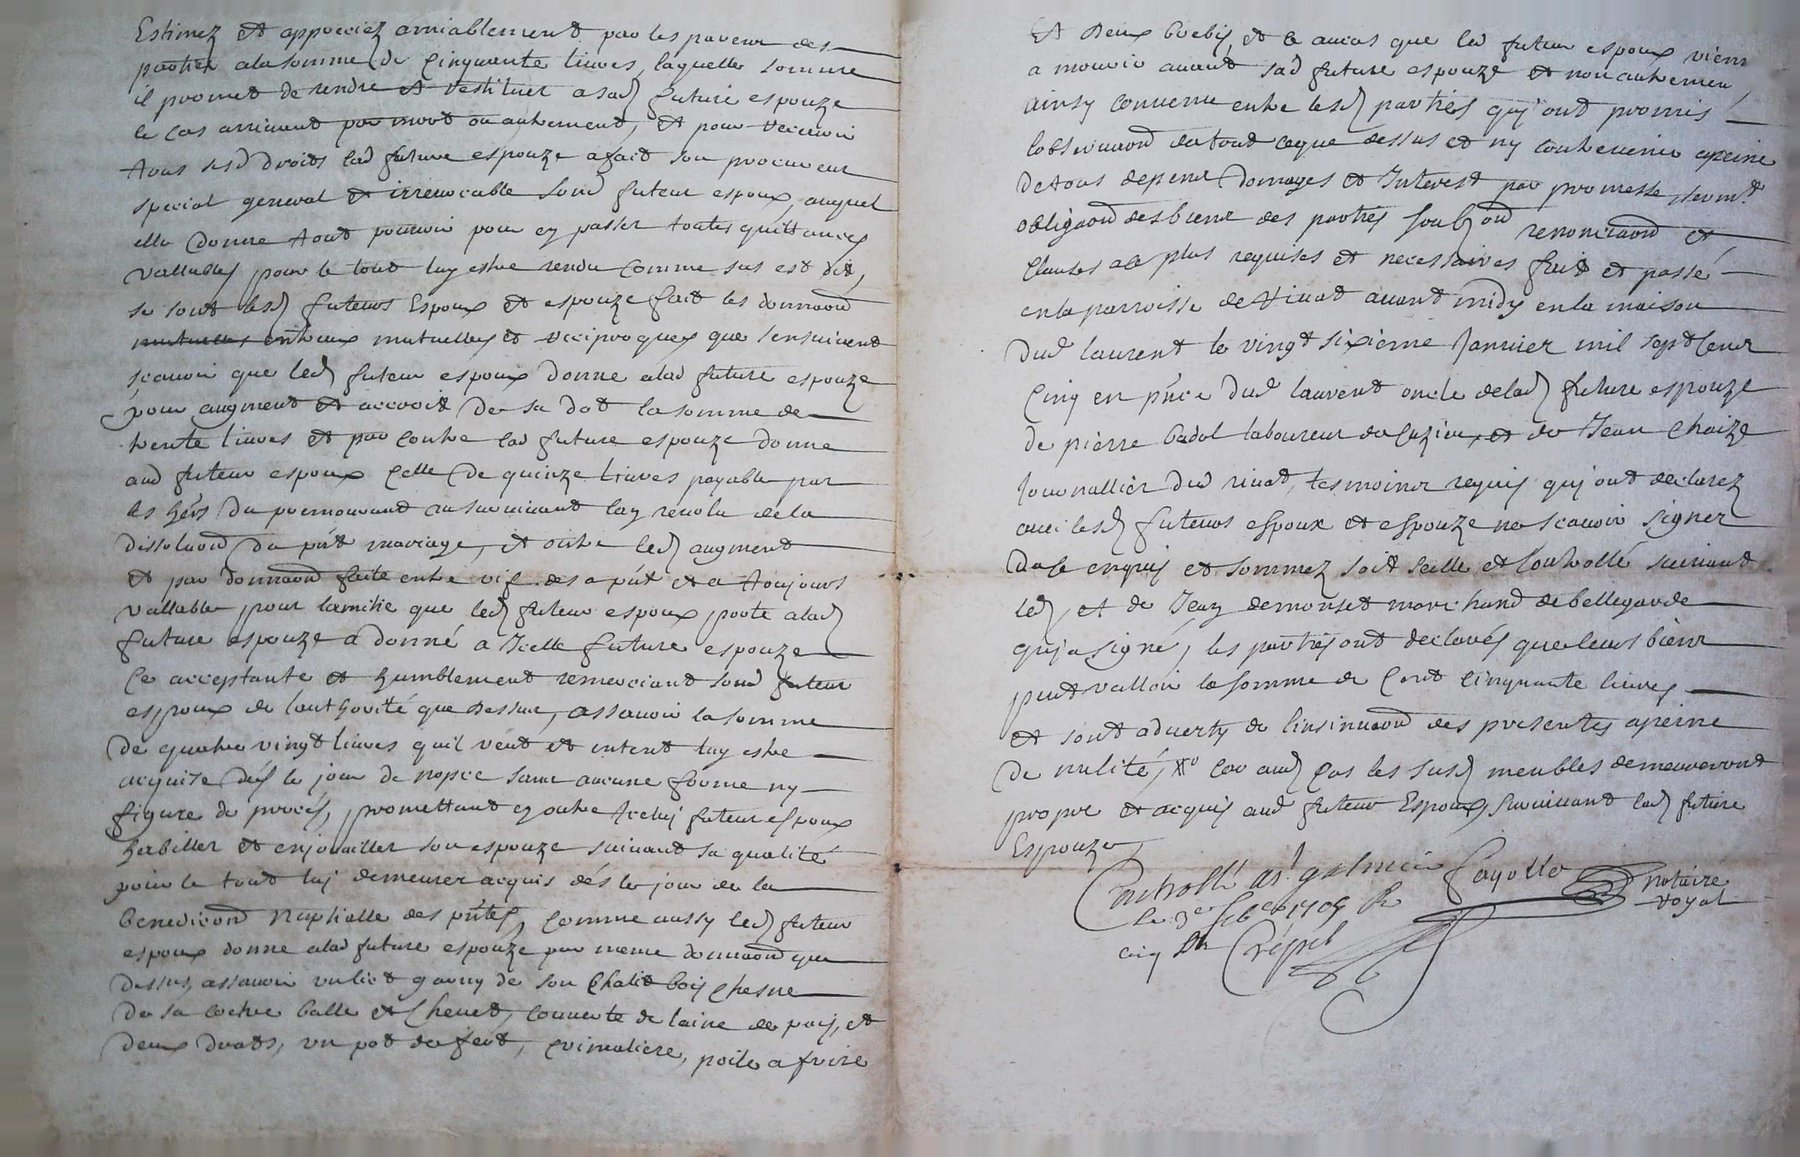 Estimez et appreciez amiablement par les parens des
parties a la somme de Cinquante livres, laquelle somme
il promet de rendre et restituer a sad future espouze
le cas arrivant par mort ou autrement, et pour recevoir
tous sesd droits lad future espouze a fait son procureur
special general et irrevocable sond futeur espoux, auquel
elle donne tout pouvoir pour en passer toutes quittances
vallables, pour le tout luy estre rendu comme sus est dit,
se sont lesd futeurs Espoux et espouze fait les donnaõns
mutuelles entreux mutuelles et reciproques que sensuivent
scavoir que led futeur espoux donne a lad future espouze
pour augment et accroit de sa dot la somme de
trente livres et par contre lad future espouze donne
aud futeur espoux celle de quinze livres payable par
les hérs du premourant au survivant lay revolu de la
dissoluõn du pñt mariage, et outre led augment
et par donnaõn faite entre vif des a pñt et a toujours
vallable pour lamitie que led futeur espoux porte a lad
future espouze a donné a Icelle future espouze
Ce acceptante et humblement remerciant sond futeur
espoux de lauthorité que dessus, assavoir la somme
de quatre vingt livres quil veut et entent luy estre
acquise dés le jour de nopce sans aucune forme ny
figure de procés, promettant en outre Icelluy futeur espoux
habiller et enjouailler son espouze suivant sa qualité
pour le tout luy demeurer acquis dés le jour de la
benediõn Nuptialle des pñtes, comme aussy led futeur
espoux donne a lad future espouze par meme donnaõn que
dessus, assavoir un lict garny de son Chalit bois Chesne
de sa coetre balle et Chevet, couverte de laine de pais, et
deux draps, un pot de fert, Crimaliere, poile a frire
Et deux brebis, et ce aucas que led futeur espoux vient
a mourir avant sad future espouze et non autrement
ainsy convenu entre lesd parties qui ont promis
lobservaõn de tout ceque dessus et ny contrevenir apeine
de tous depens domages et Interest par promesse serm.t
obligaõn des biens des parties renonciaõn et
Clauses a ce plus requises et necessaires fait et passé
en la parroisse de Rivat avant midy en la maison
dud laurent le vingt sixieme Janvier mil sept Cent
Cinq en pñce dud laurent oncle de lad future espouze
de pierre badol laboureur de et de Jean Chaize
Journallier dud rivat, tesmoins requis qui ont declarez
avec lesd futeurs espoux et espouze ne scavoir signer
de ce enquis et sommez soit scelle et Controllé suivant
led, et de Jean demonset marchand de bellegarde
qui a signé, les parties ont declarés que leurs biens
peut valloir la somme de Cent Cinquante livres
et sont adverty de linsinuaõn des presentes apeine
de nulité, car aud cas les susd meubles demeureront
propre et acquis aud futeur Espoux, survivant lad future
Espouze
Controllé a S.t galmier Fayolle notaire
le 3e feber 1705 R royal
cinq Crépet